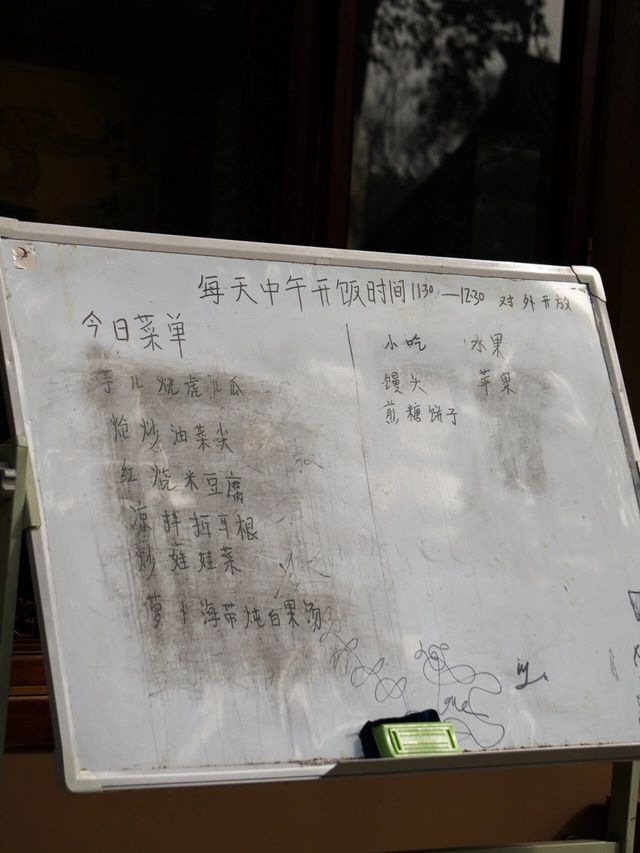 每天中午开饭时间11:30—12:30 对外开放
今日菜单
芋儿烧虎儿瓜
炝炒油菜尖
红烧米豆腐
凉拌折耳根
炒娃娃菜
萝卜海带炖白果汤
小吃 水果
馒头 苹果
煎糖饼子